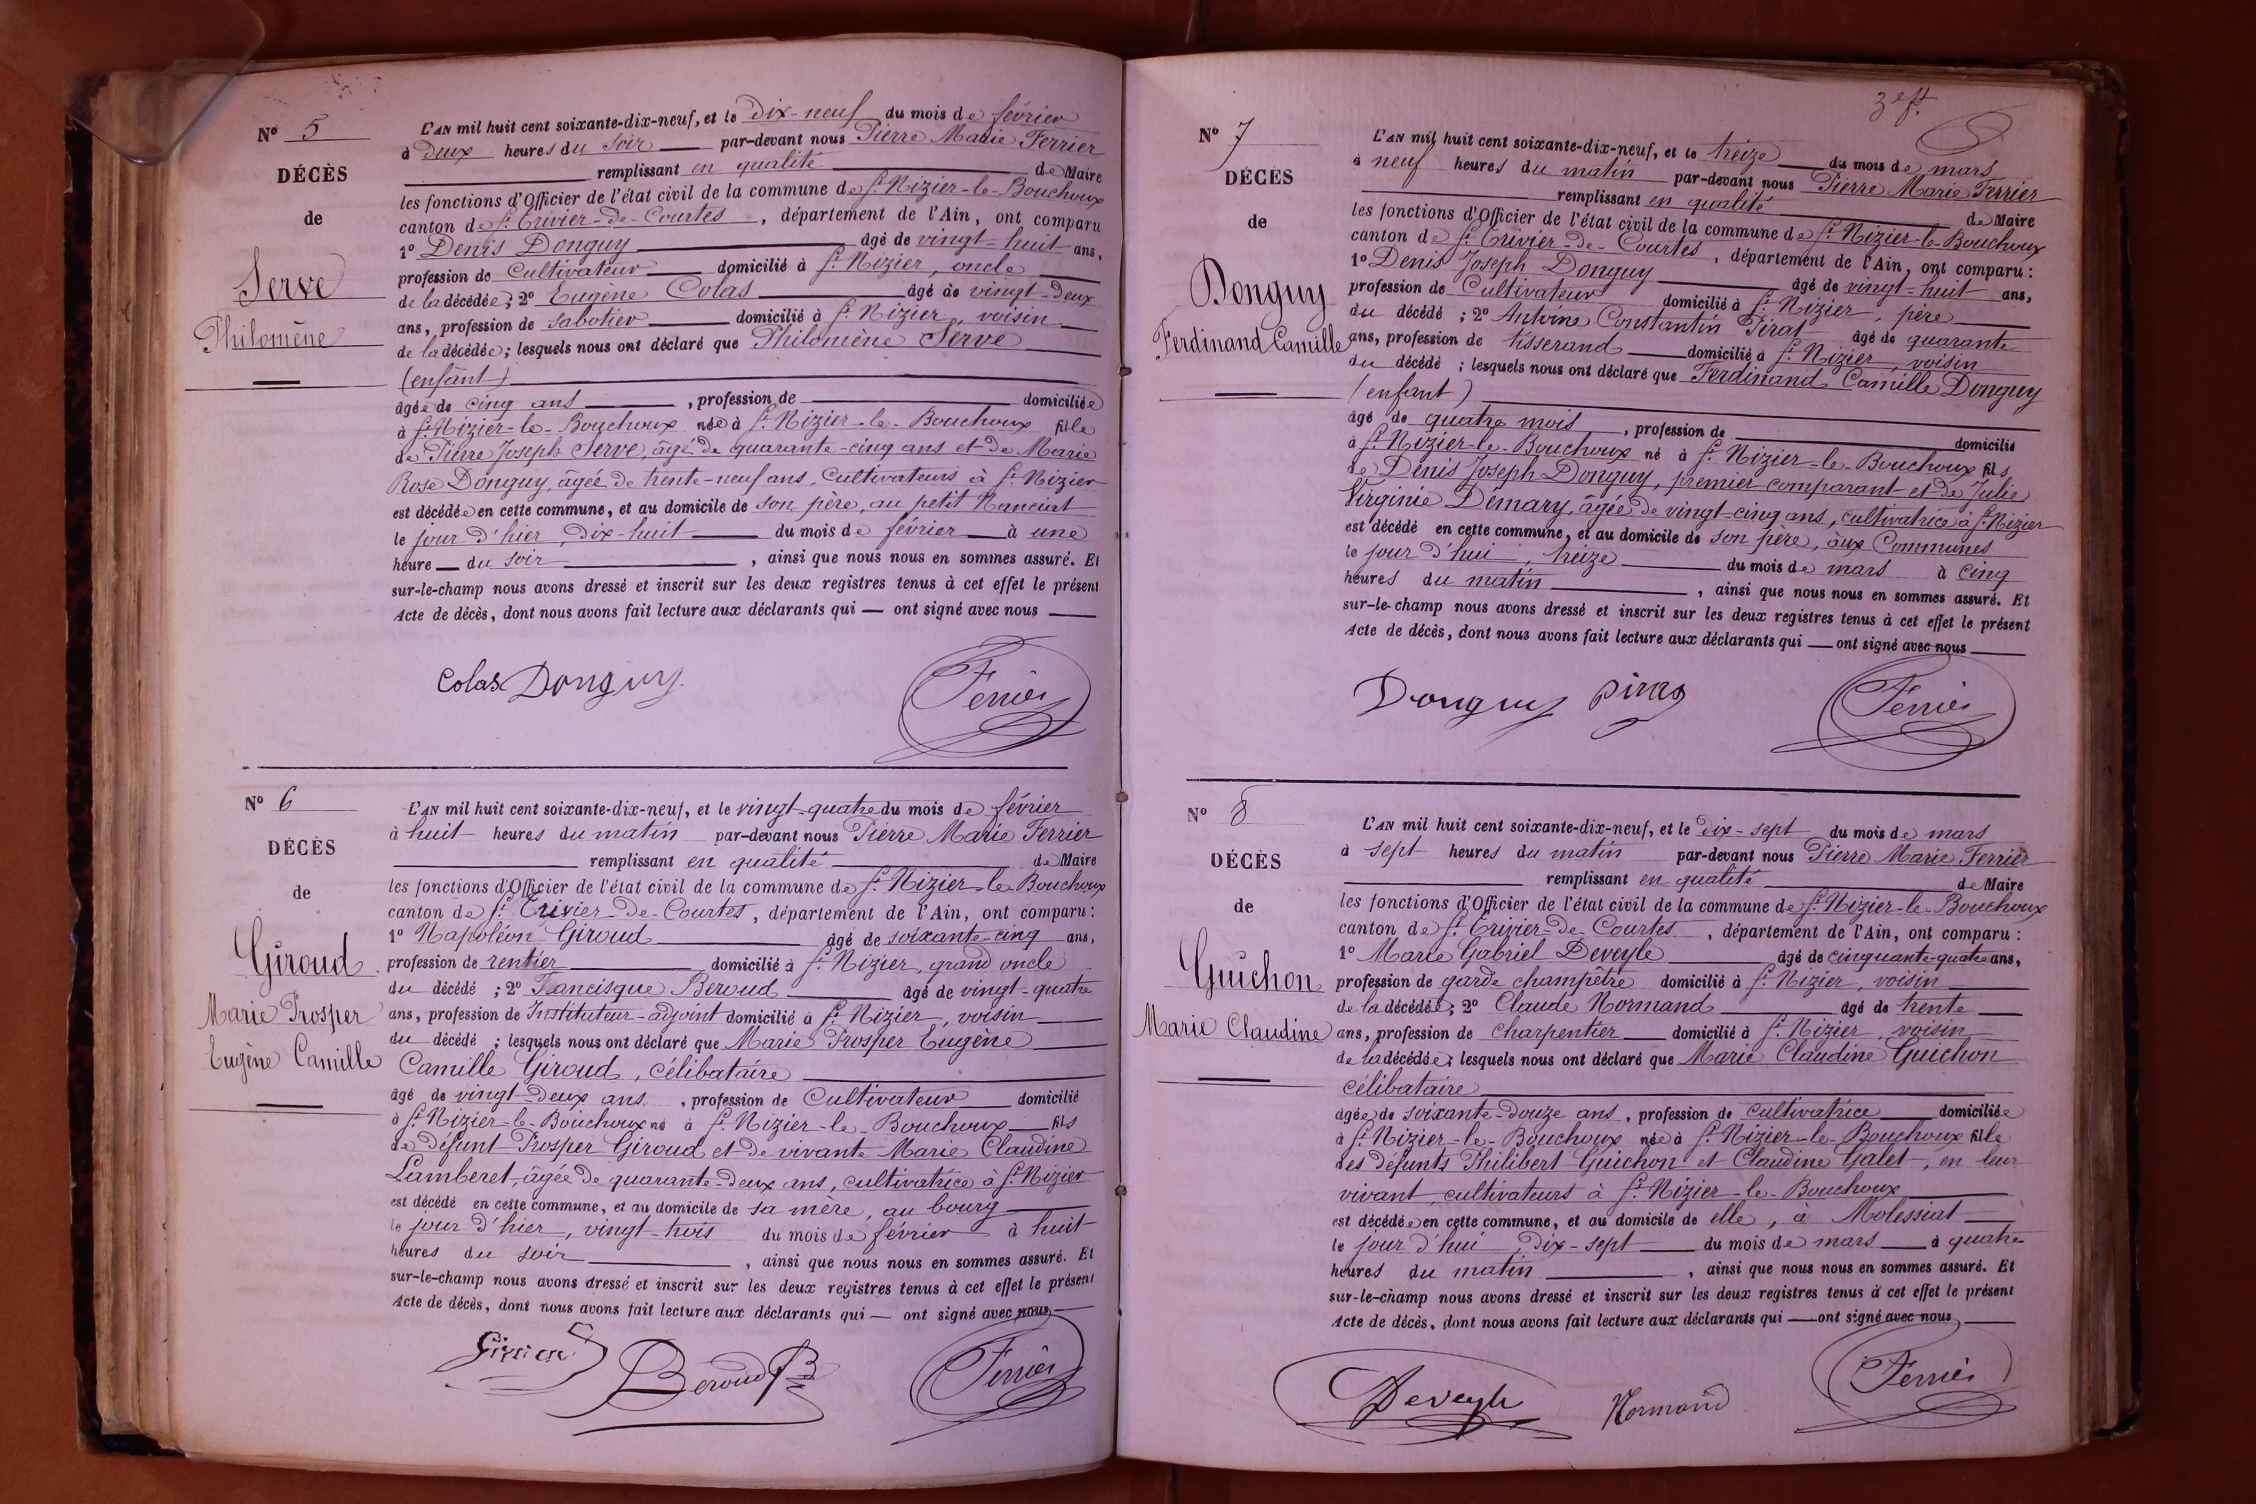 Nº 5
DÉCÈS
de
Serve
Philomène
L'AN mil huit cent soixante-dix-neuf, et le dix-neuf du mois de février
à deux heures du soir par-devant nous Pierre Marie Ferrier
remplissant en qualité de Maire
les fonctions d'Officier de l'état civil de la commune de St Nizier-le-Bouchoux
canton de St Trivier-de-Courtes, département de l'Ain, ont comparu
1º Denis Donguy âgé de vingt-huit ans,
profession de Cultivateur domicilié à St Nizier, oncle
de la décédée; 2º Eugène Colas âgé de vingt-deux
ans, profession de sabotier domicilié à St Nizier, voisin
de la décédée; lesquels nous ont déclaré que Philomène Serve
(enfant)
âgée de cinq ans, profession de domiciliée
à St Nizier-le-Bouchoux née à St Nizier-le-Bouchoux fille
de Pierre Joseph Serve, âgé de quarante-cinq ans et de Marie
Rose Donguy, âgée de trente-neuf ans, cultivateurs à St Nizier
est décédée en cette commune, et au domicile de son père, au petit Nanciat
le jour d'hier, dix-huit du mois de février à une
heure du soir, ainsi que nous nous en sommes assuré. Et
sur-le-champ nous avons dressé et inscrit sur les deux registres tenus à cet effet le présent
Acte de décès, dont nous avons fait lecture aux déclarants qui — ont signé avec nous
Colas Donguy Ferrier
Nº 6
DÉCÈS
de
Giroud
Marie Prosper
Eugène Camille
L'AN mil huit cent soixante-dix-neuf, et le vingt-quatre du mois de février
à huit heures du matin par-devant nous Pierre Marie Ferrier
remplissant en qualité de Maire
les fonctions d'Officier de l'état civil de la commune de St Nizier-le-Bouchoux
canton de St Trivier-de-Courtes, département de l'Ain, ont comparu :
1º Napoléon Giroud âgé de soixante-cinq ans,
profession de rentier domicilié à St Nizier, grand oncle
du décédé ; 2º Francisque Beroud âgé de vingt-quatre
ans, profession de Instituteur-adjoint domicilié à St Nizier, voisin
du décédé ; lesquels nous ont déclaré que Marie Prosper Eugène
Camille Giroud, célibataire
âgé de vingt-deux ans, profession de Cultivateur domicilié
à St Nizier-le-Bouchoux né à St Nizier-le-Bouchoux fils
de défunt Prosper Giroud et de vivante Marie Claudine
Lamberet, âgée de quarante-deux ans, cultivatrice à St Nizier
est décédé en cette commune, et au domicile de sa mère, au bourg
le jour d'hier, vingt-trois du mois de février à huit
heures du soir, ainsi que nous nous en sommes assuré. Et
sur-le-champ nous avons dressé et inscrit sur les deux registres tenus à cet effet le présent
Acte de décès, dont nous avons fait lecture aux déclarants qui — ont signé avec nous
Giroud Beroud Ferrier
3e ft
Nº 7
DÉCÈS
de
Donguy
Ferdinand Camille
L'AN mil huit cent soixante-dix-neuf, et le treize du mois de mars
à neuf heures du matin par-devant nous Pierre Marie Ferrier
remplissant en qualité de Maire
les fonctions d'Officier de l'état civil de la commune de St Nizier-le-Bouchoux
canton de St Trivier-de-Courtes, département de l'Ain, ont comparu :
1º Denis Joseph Donguy âgé de vingt-huit ans,
profession de Cultivateur domicilié à St Nizier, père
du décédé ; 2º Antoine Constantin Pirat âgé de quarante
ans, profession de tisserand domicilié à St Nizier, voisin
du décédé ; lesquels nous ont déclaré que Ferdinand Camille Donguy
(enfant)
âgé de quatre mois, profession de domicilié
à St Nizier-le-Bouchoux né à St Nizier-le-Bouchoux fils
de Denis Joseph Donguy, premier comparant et de Julie
Virginie Démary, âgée de vingt-cinq ans, cultivatrice à St Nizier
est décédé en cette commune, et au domicile de son père, aux Communes
le jour d'hui, treize du mois de mars à cinq
heures du matin, ainsi que nous nous en sommes assuré. Et
sur-le-champ nous avons dressé et inscrit sur les deux registres tenus à cet effet le présent
Acte de décès, dont nous avons fait lecture aux déclarants qui — ont signé avec nous
Donguy Pirat Ferrier
Nº 8
DÉCÈS
de
Guichon
Marie Claudine
L'AN mil huit cent soixante-dix-neuf, et le dix-sept du mois de mars
à sept heures du matin par-devant nous Pierre Marie Ferrier
remplissant en qualité de Maire
les fonctions d'Officier de l'état civil de la commune de St Nizier-le-Bouchoux
canton de St Trivier-de-Courtes, département de l'Ain, ont comparu :
1º Marie Gabriel Deveyle âgé de cinquante-quatre ans,
profession de garde champêtre domicilié à St Nizier, voisin
de la décédée; 2º Claude Normand âgé de trente
ans, profession de charpentier domicilié à St Nizier, voisin
de la décédée; lesquels nous ont déclaré que Marie Claudine Guichon
célibataire
âgée de soixante-douze ans, profession de cultivatrice domiciliée
à St Nizier-le-Bouchoux née à St Nizier-le-Bouchoux fille
des défunts Philibert Guichon et Claudine Galet, en leur
vivant, cultivateurs à St Nizier-le-Bouchoux
est décédée en cette commune, et au domicile de elle, à Molessiat
le jour d'hui, dix-sept du mois de mars à quatre
heures du matin, ainsi que nous nous en sommes assuré. Et
sur-le-champ nous avons dressé et inscrit sur les deux registres tenus à cet effet le présent
Acte de décès, dont nous avons fait lecture aux déclarants qui — ont signé avec nous
Deveyle Normand Ferrier